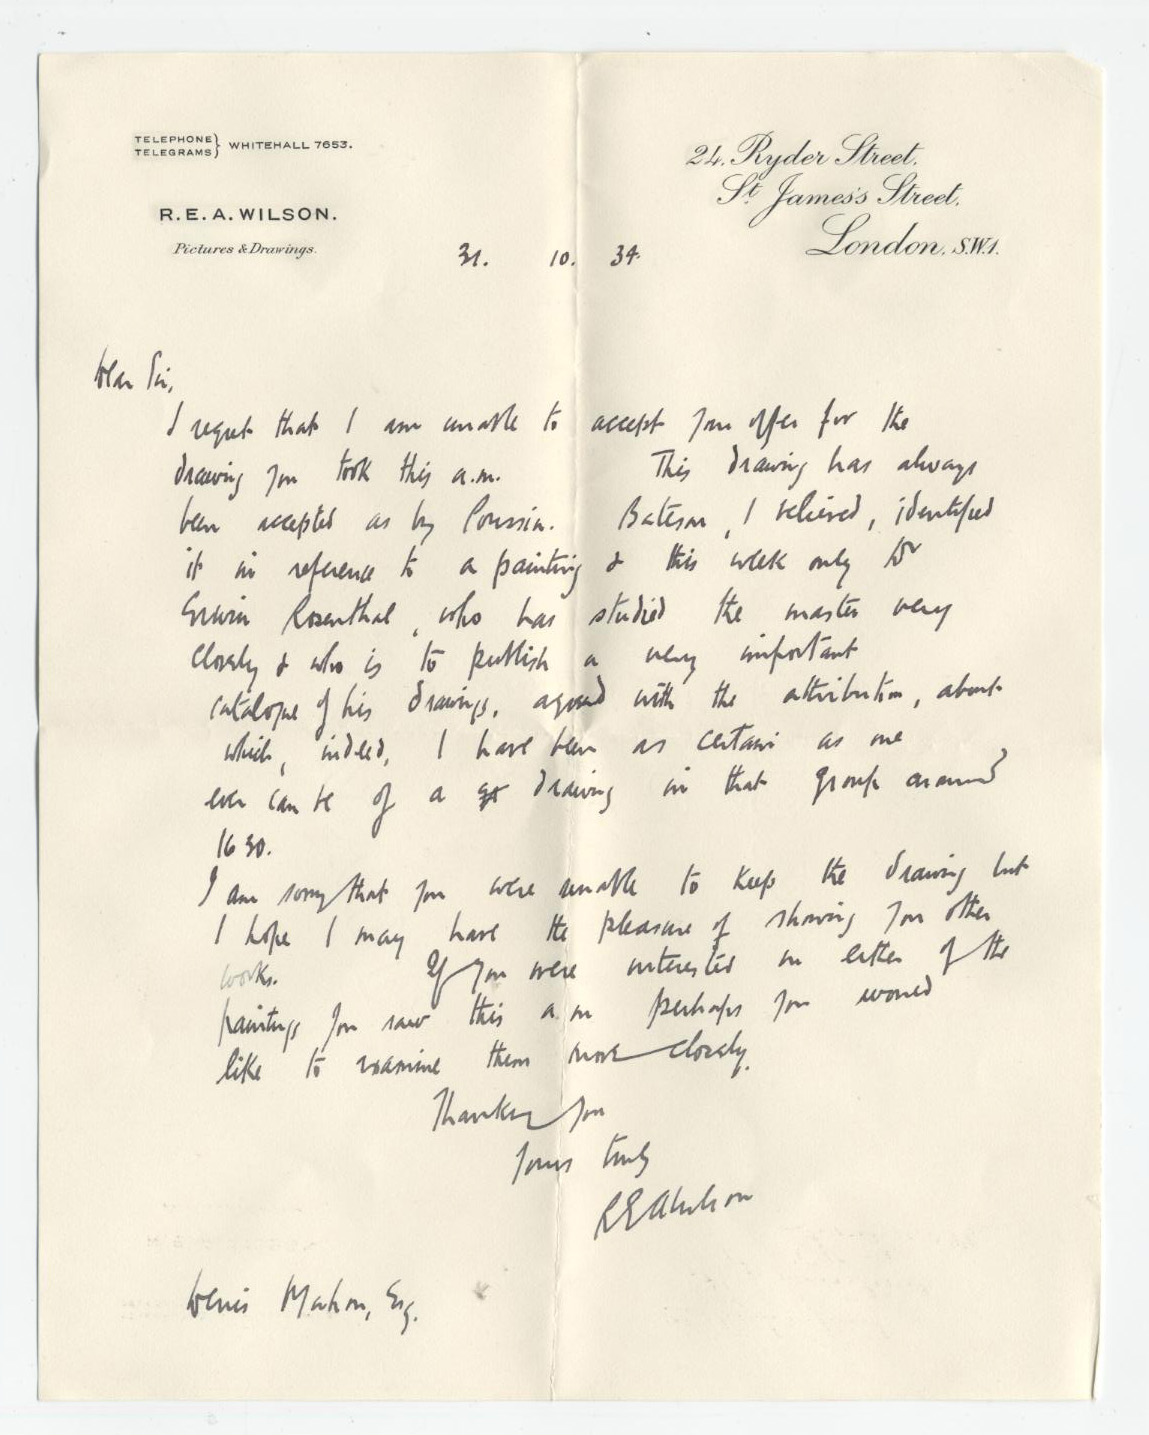 TELEPHONE } WHITEHALL 7653.
TELEGRAMS }
R.E.A. WILSON.
Pictures & Drawings.
24. Ryder Street.
St. James's Street.
London. S.W.1.
31. 10. 34.
Dear Sir,
I regret that I am unable to accept your offer for the
drawing you took this a.m. This drawing has always
been accepted as by Poussin. Bateson, I believed, identified
it in reference to a painting & this week only Dr
Erwin Rosenthal, who has studied the master very
closely & who is to publish a very important
catalogue of his drawings, agreed with the attribution, about
which, indeed, I have been as certain as one
ever can be of a drawing in that group around
1630.
I am sorry that you were unable to keep the drawing but
I hope I may have the pleasure of showing you other
works. If you were interested in either of the
paintings you saw this a.m perhaps you would
like to examine them more closely.
Thanking you
Yours truly
REAWilson
Denis Mahon, Esq.